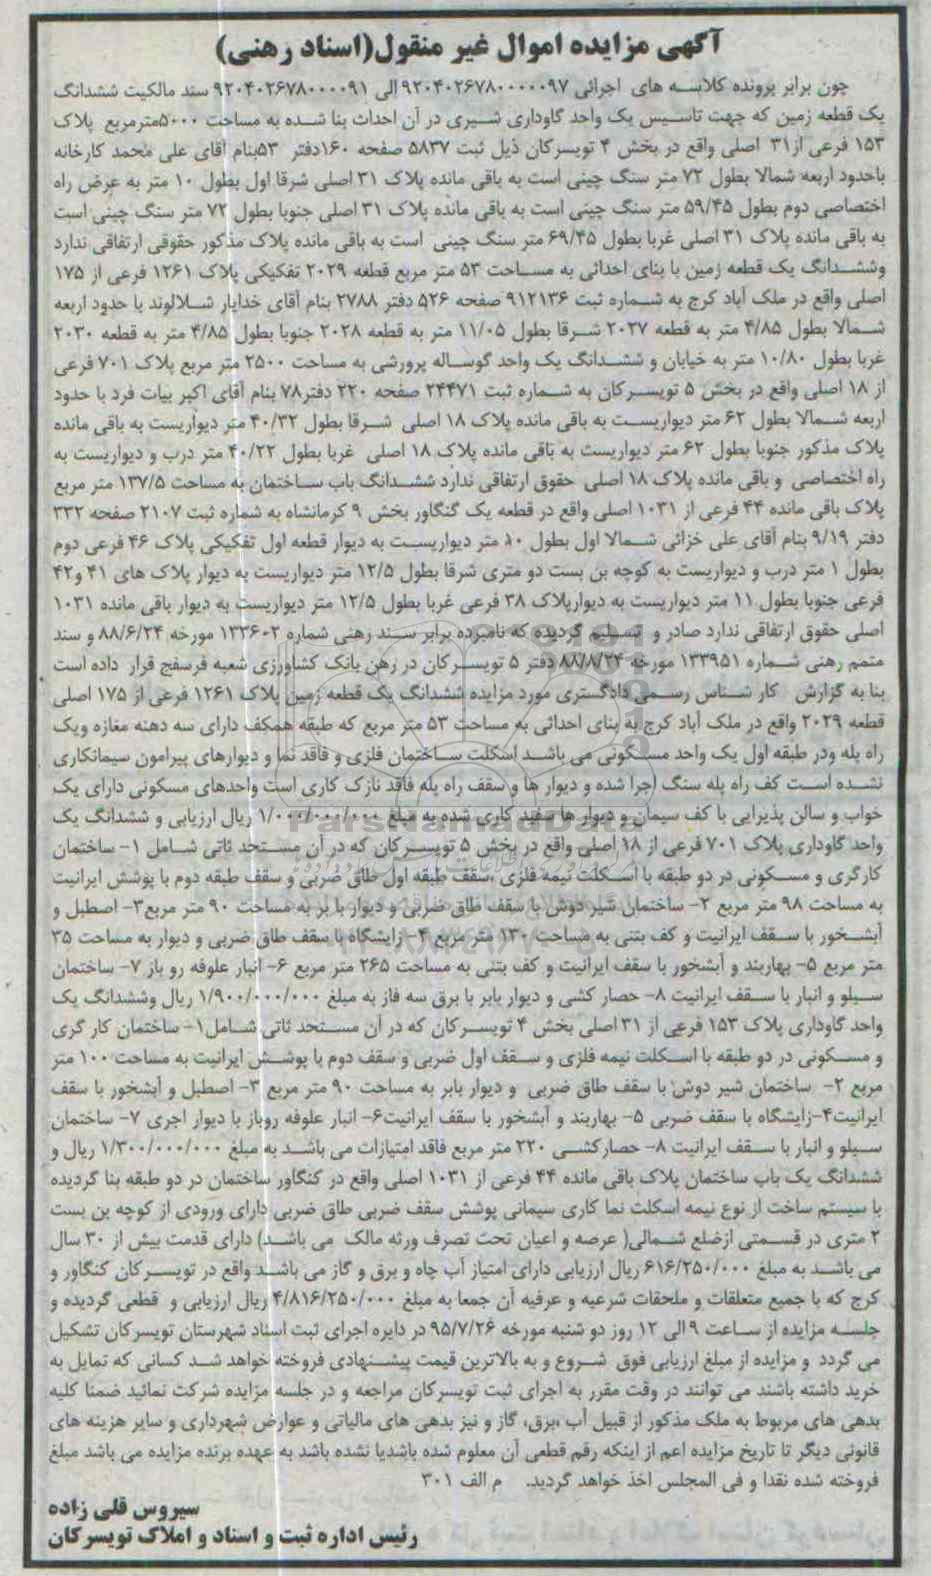 آگهی مزایده اموال غیر منقول(اسناد رهنی)
چون برابر پرونده کلاسه های اجرائی ۹۲۰۴۰۲۶۷۸۰۰۰۰۰۹۷ الی ۹۲۰۴۰۲۶۷۸۰۰۰۰۹۱ سند مالکیت ششدانگ
یک قطعه زمین که جهت تاسیس یک واحد گاوداری شیری در آن احداث بنا شده به مساحت ۵۰۰۰مترمربع پلاک
۱۵۳ فرعی از۳۱ اصلی واقع در بخش ۴ تویسرکان ذیل ثبت ۵۸۳۷ صفحه ۱۶۰دفتر ۵۳بنام آقای علی محمد کارخانه
باحدود اربعه شمالا بطول ۷۲ متر سنگ چینی است به باقی مانده پلاک ۳۱ اصلی شرقا اول بطول ۱۰ متر به عرض راه
اختصاصی دوم بطول ۵۹/۴۵ متر سنگ چینی است به باقی مانده پلاک ۳۱ اصلی جنوبا بطول ۷۲ متر سنگ چینی است
به باقی مانده پلاک ۳۱ اصلی غربا بطول ۶۹/۴۵ متر سنگ چینی است به باقی مانده پلاک مذکور حقوقی ارتفاقی ندارد
وششدانگ یک قطعه زمین با بنای احداثی به مساحت ۵۳ متر مربع قطعه ۲۰۲۹ تفکیکی پلاک ۱۲۶۱ فرعی از ۱۷۵
اصلی واقع در ملک آباد کرج به شماره ثبت ۹۱۲۱۳۶ صفحه ۵۲۶ دفتر ۲۷۸۸ بنام آقای خدایار شلالوند با حدود اربعه
شمالا بطول ۴/۸۵ متر به قطعه ۲۰۲۷ شرقا بطول ۱۱/۰۵ متر به قطعه ۲۰۲۸ جنوبا بطول ۴/۸۵ متر به قطعه ۲۰۳۰
غربا بطول ۱۰/۸۰ متر به خیابان و ششدانگ یک واحد گوساله پرورشی به مساحت ۲۵۰۰ متر مربع پلاک ۷۰۱ فرعی
از ۱۸ اصلی واقع در بخش ۵ تویسرکان به شماره ثبت ۲۴۴۷۱ صفحه ۲۲۰ دفتر۷۸ بنام آقای اکبر بیات فرد با حدود
اربعه شمالا بطول ۶۲ متر دیواریست به باقی مانده پلاک ۱۸ اصلی شرقا بطول ۴۰/۳۲ متر دیواریست به باقی مانده
پلاک مذکور جنوبا بطول ۶۲ متر دیواریست به باقی مانده پلاک ۱۸ اصلی غربا بطول ۴۰/۲۲ متر درب و دیواریست به
راه اختصاصی و باقی مانده پلاک ۱۸ اصلی حقوق ارتفاقی ندارد ششدانگ باب ساختمان به مساحت ۱۳۷/۵ متر مربع
پلاک باقی مانده ۴۴ فرعی از ۱۰۳۱ اصلی واقع در قطعه یک گنگاور بخش ۹ کرمانشاه به شماره ثبت ۲۱۰۷ صفحه ۳۳۲
دفتر ۹/۱۹ بنام آقای علی خزائی شمالا اول بطول ۱۰ متر دیواریست به دیوار قطعه اول تفکیکی پلاک ۴۶ فرعی دوم
بطول ۱ متر درب و دیواریست به کوچه بن بست دو متری شرقا بطول ۱۲/۵ متر دیواریست به دیوار پلاک های ۴۱ و۴۲
فرعی جنوبا بطول ۱۱ متر دیواریست به دیوارپلاک ۳۸ فرعی غربا بطول ۱۲/۵ متر دیواریست به دیوار باقی مانده ۱۰۳۱
اصلی حقوق ارتفاقی ندارد صادر و تسلیم گردیده که نامبرده برابر سند رهنی شماره ۱۳۳۶۰۲ مورخه ۸۸/۶/۲۴ و سند
متمم رهنی شماره ۱۳۳۹۵۱ مورخه ۸۸/۸/۲۴ دفتر ۵ تویسرکان در رهن بانک کشاورزی شعبه فرسفج قرار داده است
بنا به گزارش کار شناس رسمی دادگستری مورد مزایده ششدانگ یک قطعه زمین پلاک ۱۲۶۱ فرعی از ۱۷۵ اصلی
قطعه ۲۰۲۹ واقع در ملک آباد کرج به بنای احداثی به مساحت ۵۳ متر مربع که طبقه همکف دارای سه دهنه مغازه ویک
راه پله ودر طبقه اول یک واحد مسکونی می باشد اسکلت ساختمان فلزی و فاقد نما و دیوارهای پیرامون سیمانکاری
نشده است کف راه پله سنگ اجرا شده و دیوار ها و سقف راه پله فاقد نازک کاری است واحدهای مسکونی دارای یک
خواب و سالن پذیرایی با کف سیمان و دیوار ها سفید کاری شده به مبلغ ۱/۰۰۰/۰۰۰/۰۰۰ ریال ارزیابی و ششدانگ یک
واحد گاوداری پلاک ۷۰۱ فرعی از ۱۸ اصلی واقع در بخش ۵ تویسرکان که در آن مستحد ثاتی شامل ۱- ساختمان
کارگری و مسکونی در دو طبقه با اسکلت نیمه فلزی ،سقف طبقه اول طاق ضربی و سقف طبقه دوم با پوشش ایرانیت
به مساحت ۹۸ متر مربع ۲- ساختمان شیر دوش با سقف طاق ضربی و دیوار با بر به مساحت ۹۰ متر مربع۳- اصطبل و
آبشخور با سقف ایرانیت و کف بتنی به مساحت ۱۳۰ متر مربع ۴- زایشگاه با سقف طاق ضربی و دیوار به مساحت ۳۵
متر مربع ۵- بهاربند و آبشخور با سقف ایرانیت و کف بتنی به مساحت ۲۶۵ متر مربع ۶- انبار علوفه رو باز ۷- ساختمان
سیلو و انبار با سقف ایرانیت ۸- حصار کشی و دیوار بابر با برق سه فاز به مبلغ ۱/۹۰۰/۰۰۰/۰۰۰ ریال وششدانگ یک
واحد گاوداری پلاک ۱۵۳ فرعی از ۳۱ اصلی بخش ۴ تویسرکان که در آن مستحد ثاتی شامل۱- ساختمان کار گری
و مسکونی در دو طبقه با اسکلت نیمه فلزی و سقف اول ضربی و سقف دوم با پوشش ایرانیت به مساحت ۱۰۰ متر
مربع ۲- ساختمان شیر دوش با سقف طاق ضربی و دیوار بابر به مساحت ۹۰ متر مربع ۳- اصطبل و آبشخور با سقف
ایرانیت۴-زایشگاه با سقف ضربی ۵- بهاربند و آبشخور با سقف ایرانیت۶- انبار علوفه روباز با دیوار اجری ۷- ساختمان
سیلو و انبار با سقف ایرانیت ۸- حصارکشی ۲۲۰ متر مربع فاقد امتیازات می باشد به مبلغ ۱/۳۰۰/۰۰۰/۰۰۰ ریال و
ششدانگ یک باب ساختمان پلاک باقی مانده ۴۴ فرعی از ۱۰۳۱ اصلی واقع در کنگاور ساختمان در دو طبقه بنا گردیده
با سیستم ساخت از نوع نیمه اسکلت نما کاری سیمانی پوشش سقف ضربی طاق ضربی دارای ورودی از کوچه بن بست
۲ متری در قسمتی ازضلع شمالی( عرصه و اعیان تحت تصرف ورثه مالک می باشد) دارای قدمت بیش از ۳۰ سال
می باشد به مبلغ ۶۱۶/۲۵۰/۰۰۰ ریال ارزیابی دارای امتیاز آب چاه و برق و گاز می باشد واقع در تویسرکان کنگاور و
کرج که با جمیع متعلقات و ملحقات شرعیه و عرفیه آن جمعا به مبلغ ۴/۸۱۶/۲۵۰/۰۰۰ ریال ارزیابی و قطعی گردیده و
جلسه مزایده از ساعت ۹ الی ۱۲ روز دو شنبه مورخه ۹۵/۷/۲۶ در دایره اجرای ثبت اسناد شهرستان تویسرکان تشکیل
می گردد و مزایده از مبلغ ارزیابی فوق شروع و به بالاترین قیمت پیشنهادی فروخته خواهد شد کسانی که تمایل به
خرید داشته باشند می توانند در وقت مقرر به اجرای ثبت تویسرکان مراجعه و در جلسه مزایده شرکت نمائید ضمنا کلیه
بدهی های مربوط به ملک مذکور از قبیل آب ،برق، گاز و نیز بدهی های مالیاتی و عوارض شهرداری و سایر هزینه های
قانونی دیگر تا تاریخ مزایده اعم از اینکه رقم قطعی آن معلوم شده باشدیا نشده باشد به عهده برنده مزایده می باشد مبلغ
فروخته شده نقدا و فی المجلس اخذ خواهد گردید. م الف ۳۰۱
سیروس قلی زاده
رئیس اداره ثبت و اسناد و املاک تویسرکان
ParsNamadData